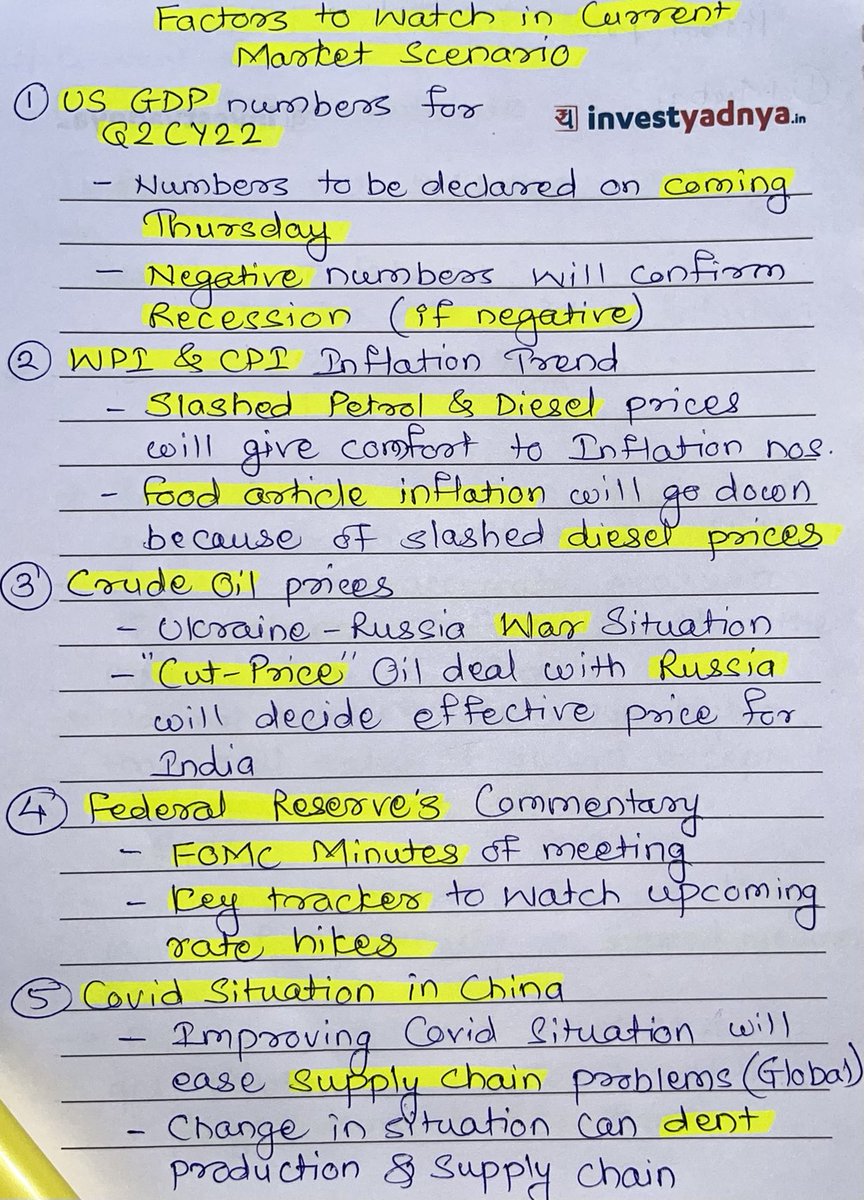 Factors to Watch in Current
Market Scenario
① US GDP numbers for
Q2CY22
य investyadnya.in
- Numbers to be declared on coming
Thursday
- Negative numbers will confirm
Recession (if negative)
② WPI & CPI Inflation Trend
- Slashed Petrol & Diesel prices
will give comfort to Inflation nos.
- food article inflation will go down
because of slashed diesel prices
③ Crude Oil prices
- Ukraine - Russia War Situation
- "Cut-Price" Oil deal with Russia
will decide effective price for
India
④ Federal Reserve's Commentary
- FOMC Minutes of meeting
- Key tracker to watch upcoming
rate hikes
⑤ Covid Situation in China
- Improving Covid Situation will
ease supply chain problems (Global)
- Change in situation can dent
production & supply chain